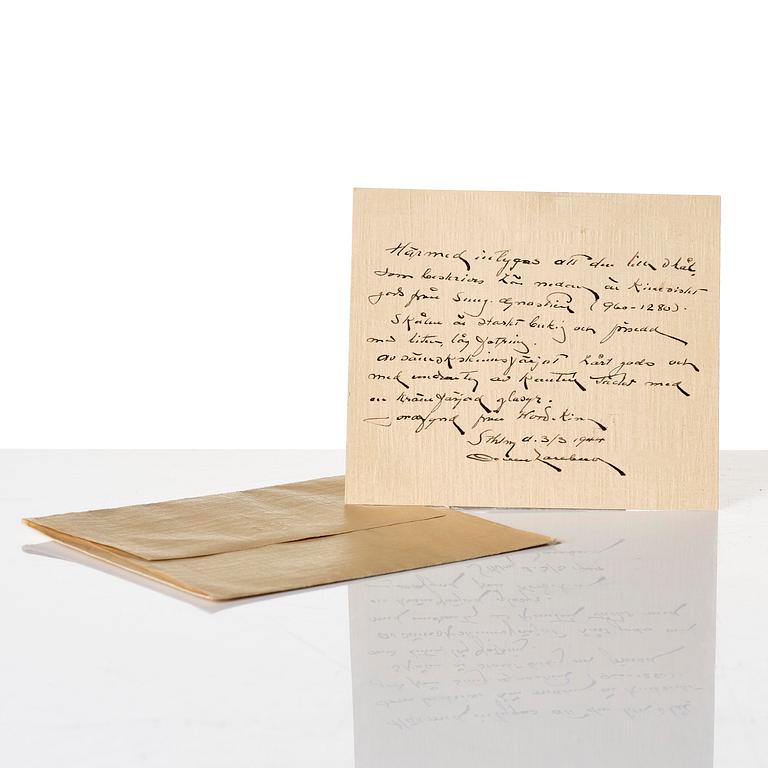 Härmed intygas att den lilla skål,
som beskrives här nedan är Kinesiskt
gods från Sung-dynastien (960-1280).
Skålen är starkt bukig och försedd
med liten, låg fotring.
Av sämskskinnsfärgat hårt gods och
med undantag av kanten täckt med
en krämfärgad glasyr.
Jordfynd från Nord-Kina
Sthlm d. 3/3 1944